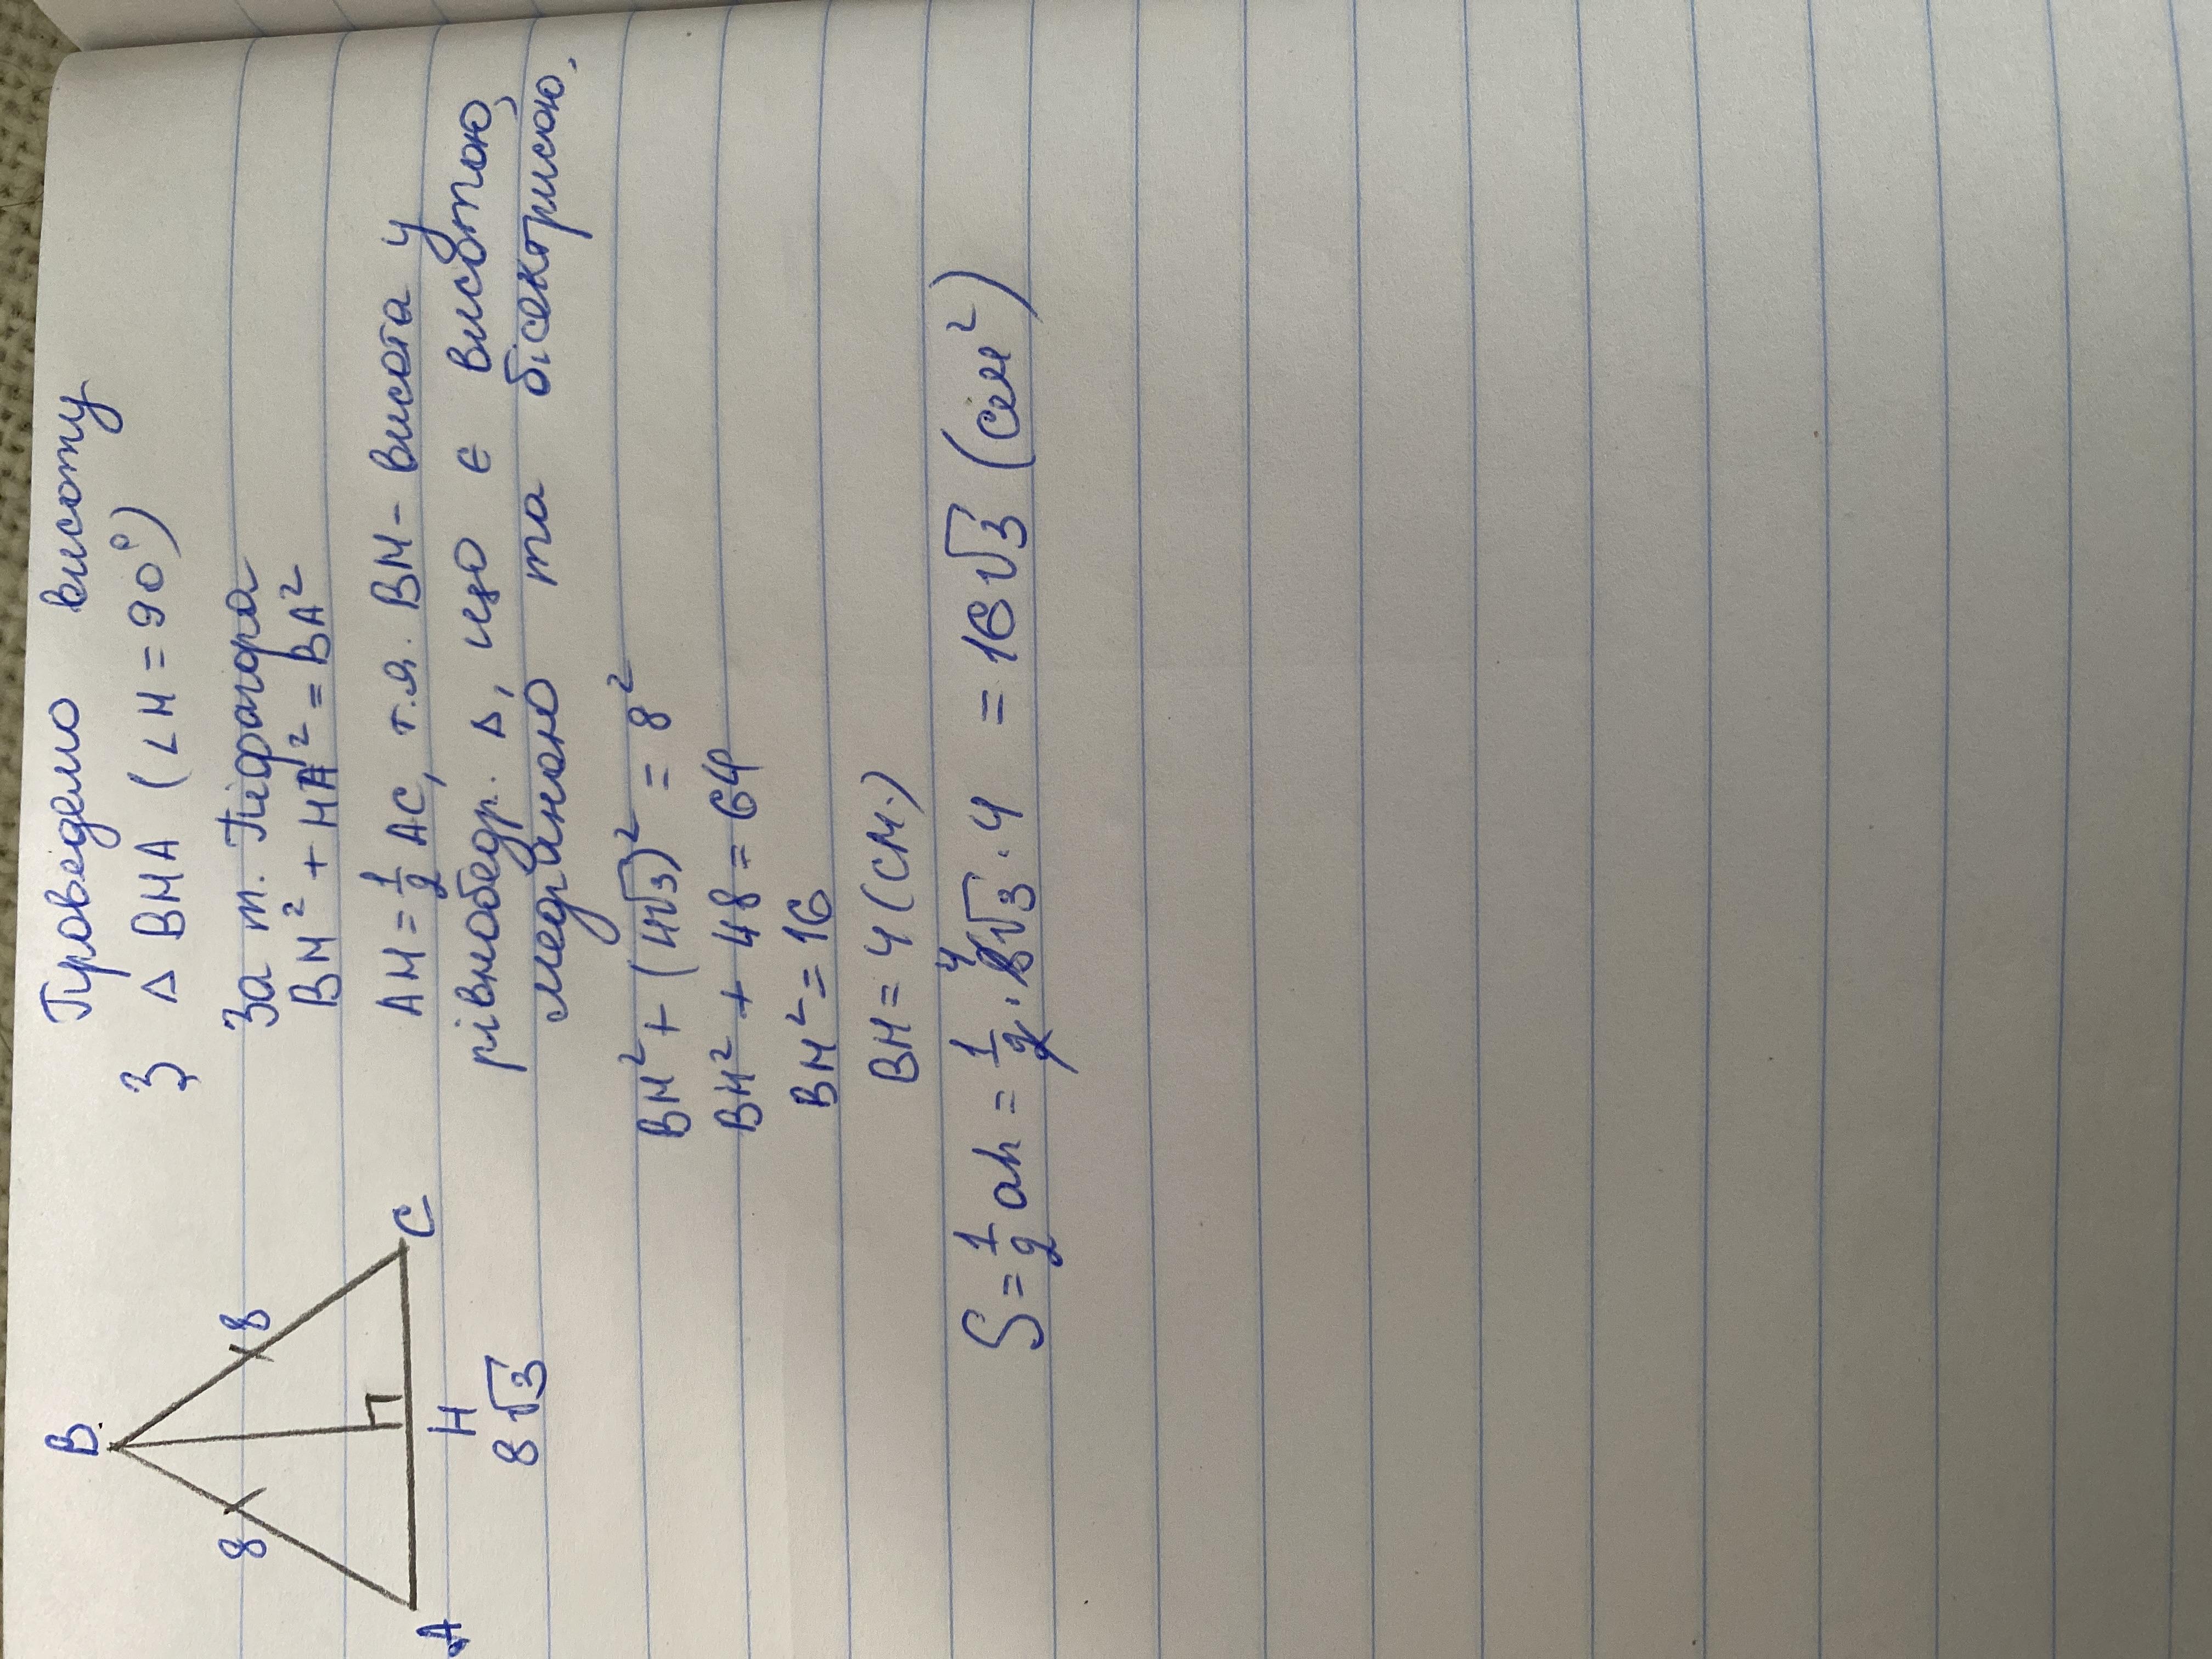 B
8
8
A
H
C
8√3
Проведемо висоту
З Δ BHA (∠H = 90°)
За т. Піфагора
BH² + HA² = BA²
AH = 1/2 AC, т.я. BH - висота у
рівнобедр. Δ, що є висотою,
медіаною та бісектрисою.
BH² + (4√3)² = 8²
BH² + 48 = 64
BH² = 16
BH = 4 (см.)
S = 1/2 ah = 1/2 · 8√3 · 4 = 16√3 (см²)
4